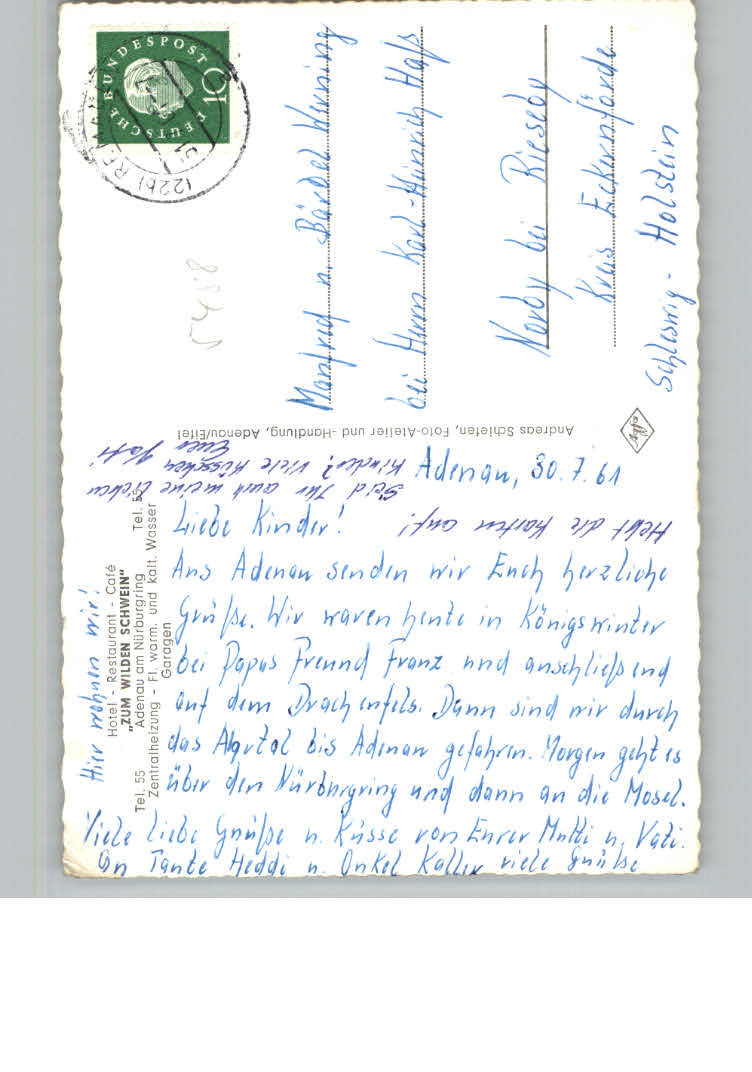 Adenau, 30.7.61
Liebe Kinder!
Aus Adenau senden wir Euch herzliche
Grüße. Wir waren heute in Königswinter
bei Papas Freund Franz und anschließend
auf dem Drachenfels. Dann sind wir durch
das Ahrtal bis Adenau gefahren. Morgen geht es
über den Nürburgring und dann an die Mosel.
Viele liebe Grüße u. Küsse von Eurer Mutti u. Vati.
An Tante Heddi u. Onkel Kaller viele Grüße
Hebt die Karten auf!
Seid Ihr auch meine lieben
Kinder? Viele Küsschen
Euer Vati
Hier wohnen wir!
Hotel - Restaurant - Café
„ZUM WILDEN SCHWEIN"
Tel. 55 Adenau am Nürburgring Tel. 55
Zentralheizung - Fl. warm. und kalt. Wasser
Garagen
Andreas Schiefen, Foto-Atelier und -Handlung, Adenau/Eifel
Manfred u. Bärbel Werning
bei Herrn Karl-Heinrich Haß
Norby bei Rieseby
Kreis Eckernförde
Schleswig-Holstein
DEUTSCHE BUNDESPOST
10
(22b)
5488